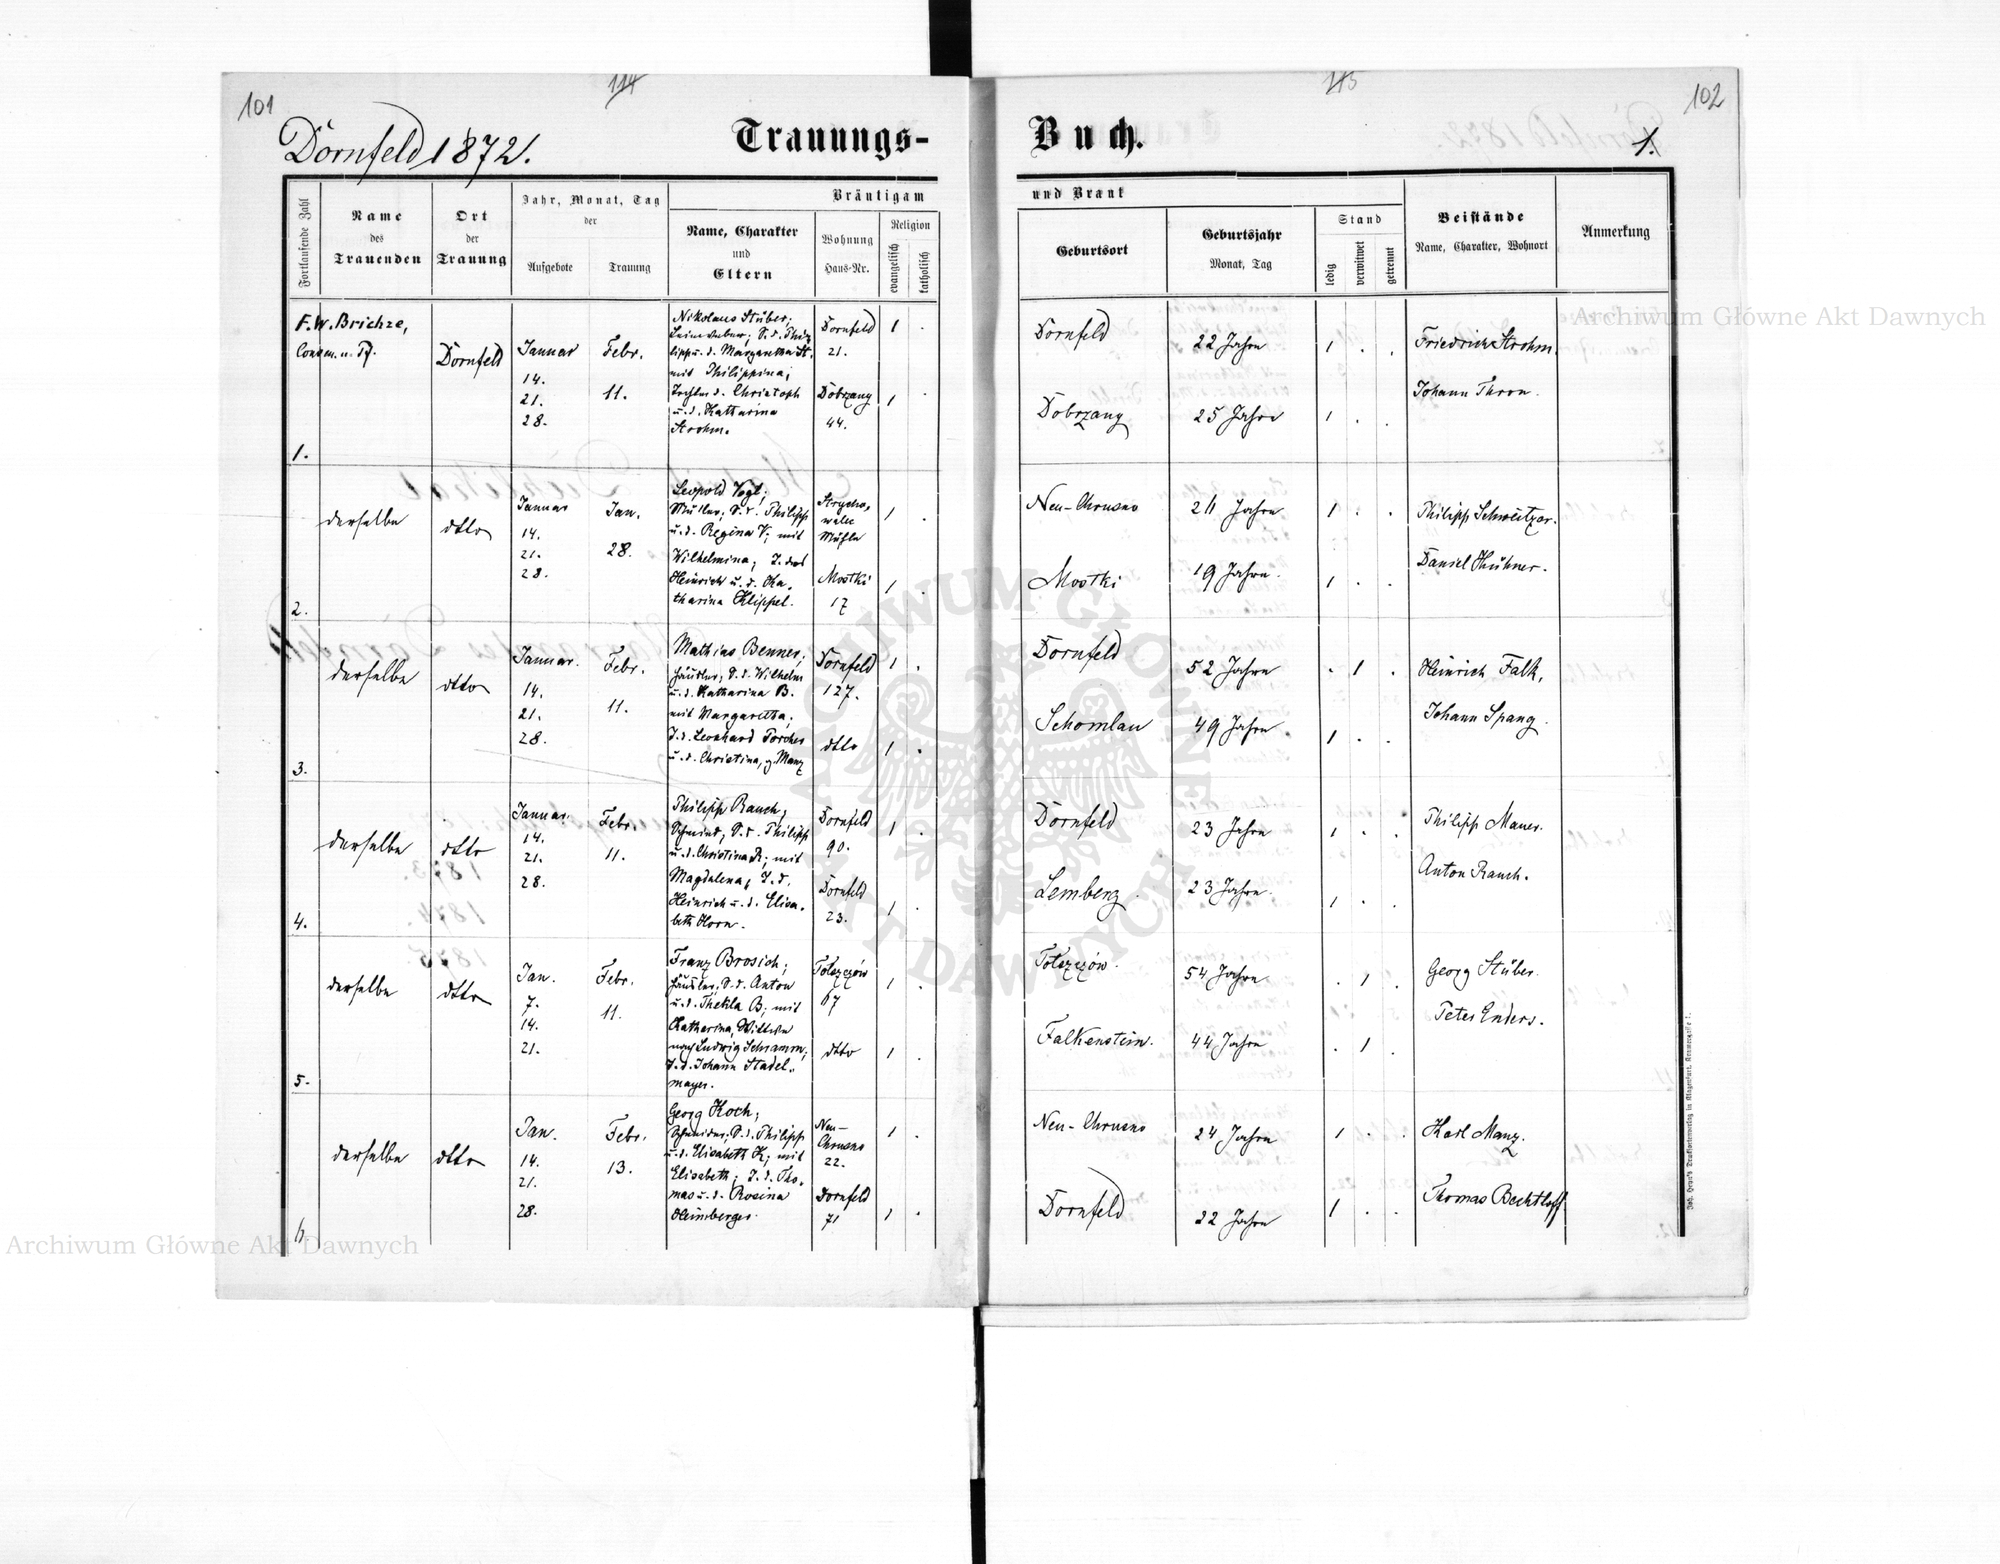 101
114
115
102
Dornfeld 1872.
Trauungs-
Buch.
1.
Fortlaufende Zahl
Name
des
Trauenden
Ort
der
Trauung
Jahr, Monat, Tag
der
Aufgebote
Trauung
Bräutigam
Name, Charakter
und
Eltern
Wohnung
Haus-Nr.
Religion
evangelisch
katholisch
und Braut
Geburtsort
Geburtsjahr
Monat, Tag
Stand
ledig
verwitwet
getrennt
Beistände
Name, Charakter, Wohnort
Anmerkung
1.
F. W. Brichze,
Dornfeld
Januar
14.
21.
28.
Febr.
11.
Nikolaus Stüber;
Leinweber; S. d. Phi-
lipp u. d. Margaretha St.
mit Philippina;
Tochter d. Christoph
u. d. Katharina
Strohm.
Dornfeld
21.
Dobrzany
44.
1 .
1 .
Dornfeld
22 Jahre
1 . .
Dobrzany
25 Jahre
1 . .
Friedrich Strohm.
Johann Thron.
2.
derselbe
dtto
Januar
14.
21.
28.
Jan.
28.
Leopold Vogt;
Müller; S. d. Philipp
u. d. Regina V; mit
Wilhelmina; T. des
Heinrich u. d. Ka-
tharina Klippel.
Mühle
Mostki
17
1 .
1 .
Neu-Chrusno
24 Jahre
1 . .
Mostki
19 Jahre.
1 . .
Philipp Schweitzer.
Daniel Hühner.
3.
derselbe
dtto
Januar.
14.
21.
28.
Febr.
11.
Mathias Benner;
Häusler; S. d. Wilhelm
u. d. Katharina B.
mit Margaretha;
T. d. Leonhard Porcher
u. d. Christina, g. Manz
Dornfeld
127.
dtto
1 .
1 .
Dornfeld
52 Jahre
. 1 .
Schomlau
49 Jahre.
1 . .
Heinrich Falk,
Johann Spang.
4.
derselbe
dtto
Januar.
14.
21.
28.
Febr.
11.
Philipp Rauch;
Schmied; S. d. Philipp
u. d. Christina R; mit
Magdalena; T. d.
Heinrich u. d. Elisa-
beth Horn.
Dornfeld
90.
Dornfeld
23.
1 .
1 .
Dornfeld
23 Jahre
1 . .
Lemberg
23 Jahre.
1 . .
Philipp Mauer.
Anton Rauch.
5.
derselbe
dtto
Jan.
7.
14.
21.
Febr.
11.
Franz Brosich;
Häusler; S. d. Anton
u. d. Thekla B; mit
Katharina, Wittwe
nach Ludwig Schramm;
T. d. Johann Stadel-
mayer.
Tołszczów
67
dtto
1 .
1 .
Tołszczów.
54 Jahre.
. 1 .
Falkenstein.
44 Jahre
. 1 .
Georg Stüber.
Peter Enders.
6.
derselbe
dtto
Jan.
14.
21.
28.
Febr.
13.
Georg Koch;
Schneider; S. d. Philipp
u. d. Elisabeth K; mit
Elisabeth; T. d. Tho-
mas u. d. Rosina
Heimberger.
Neu-
Chrusno
22.
Dornfeld
71
1 .
1 .
Neu-Chrusno
24 Jahre
1 . .
Dornfeld
22 Jahre
1 . .
Karl Manz.
Thomas Bechtloff
Joh. Heyn's Drucksortenverlag in Klagenfurt
Archiwum Główne Akt Dawnych
Archiwum Główne Akt Dawnych
ARCHIWUM GŁÓWNE AKT DAWNYCH